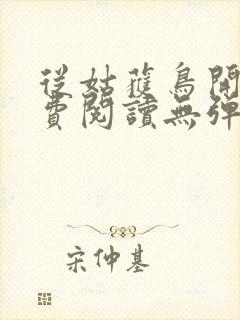 從姑蘇鳥開
費閱讀無彈
宋仲基